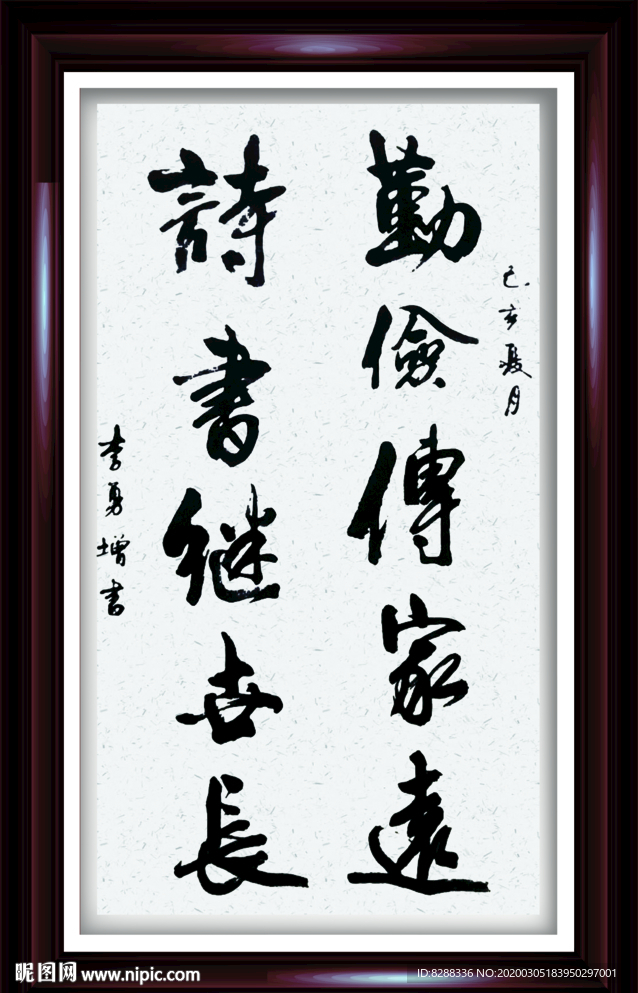 己亥夏月
勤儉傳家遠
詩書継世長
李勇增書
昵图网 www.nipic.com
ID:8288336 NO:20200305183950297001